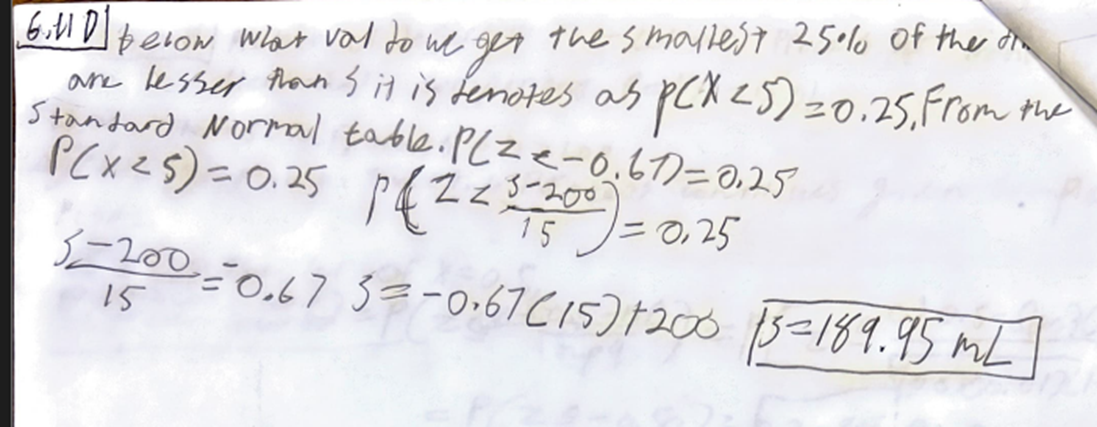 6.11 D below what val do we get the smallest 25% of the
are lesser than s it is denotes as P(X<s)=0.25. From the
Standard Normal table. P(Z<-0.67)=0.25
P(X<s)=0.25 P(Z<(s-200)/15)=0.25
(s-200)/15=-0.67 s=-0.67(15)+200 s=189.95 mL